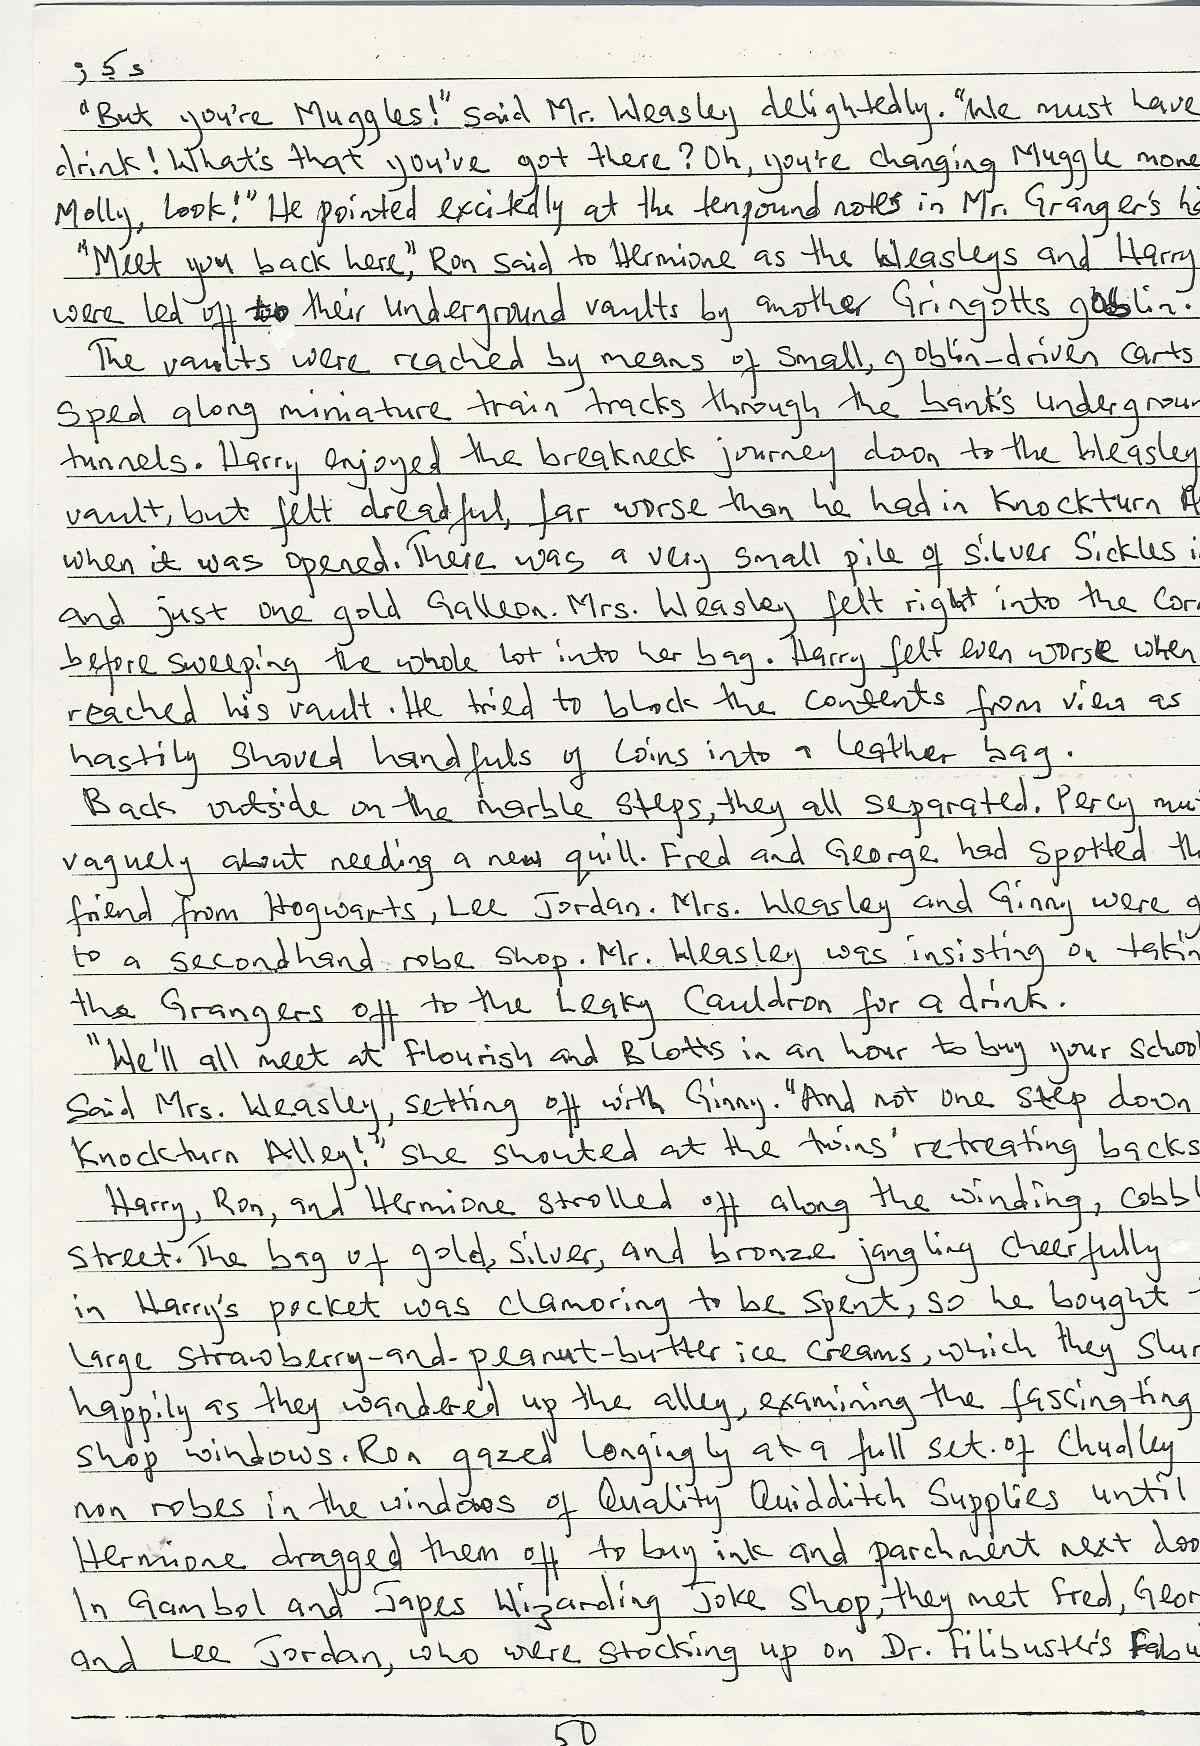 "But you're Muggles!" said Mr. Weasley delightedly. "We must have
drink! What's that you've got there? Oh, you're changing Muggle mone
Molly, look!" He pointed excitedly at the tenpound notes in Mr. Granger's ha
"Meet you back here," Ron said to Hermione as the Weasleys and Harry
were led off to their underground vaults by another Gringotts goblin.
The vaults were reached by means of small, goblin-driven carts
sped along miniature train tracks through the bank's undergroun
tunnels. Harry enjoyed the breakneck journey down to the Weasley
vault, but felt dreadful, far worse than he had in Knockturn A
when it was opened. There was a very small pile of silver Sickles i
and just one gold Galleon. Mrs. Weasley felt right into the cor
before sweeping the whole lot into her bag. Harry felt even worse when
reached his vault. He tried to block the contents from view as
hastily shoved handfuls of coins into a leather bag.
Back outside on the marble steps, they all separated. Percy mu
vaguely about needing a new quill. Fred and George had spotted th
friend from Hogwarts, Lee Jordan. Mrs. Weasley and Ginny were g
to a secondhand robe shop. Mr. Weasley was insisting on takin
the Grangers off to the Leaky Cauldron for a drink.
"We'll all meet at Flourish and Blotts in an hour to buy your school
said Mrs. Weasley, setting off with Ginny. "And not one step down
Knockturn Alley!" she shouted at the twins' retreating backs
Harry, Ron, and Hermione strolled off along the winding, cobbl
street. The bag of gold, silver, and bronze jangling cheerfully
in Harry's pocket was clamoring to be spent, so he bought t
large strawberry-and-peanut-butter ice creams, which they slur
happily as they wandered up the alley, examining the fascinating
shop windows. Ron gazed longingly at a full set. of Chudley
non robes in the windows of Quality Quidditch Supplies until
Hermione dragged them off to buy ink and parchment next doo
In Gambol and Japes Wizarding Joke Shop, they met Fred, Geor
and Lee Jordan, who were stocking up on Dr. Filibuster's Fabu
50